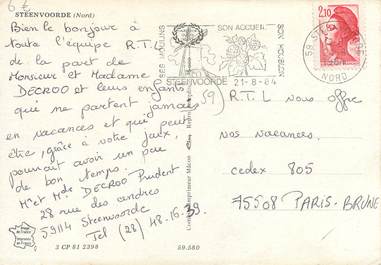 6€
STEENVOORDE (Nord)
Bien le bonjour à
toute l'équipe R.T.L
de la part de
Monsieur et Madame
DECROO et leurs enfants
qui ne partent jamais (9)
en vacances et qui peut
être, grâce à votre jeux,
pourrait avoir un peu
de bon temps.
Mr et Mde DECROO Prudent
28 rue des cendres
59114 Steenvoorde
Tel (28) 48.16.39
3 CP 81 2398
59.580
SES MOULINS
SON ACCUEIL
SON HOUBLON
STEENVOORDE 21-8-84
59 STEENVOORDE
NORD
2,10
R.T.L Vous offre
vos vacances.
cedex 805
75508 PARIS-BRUNE